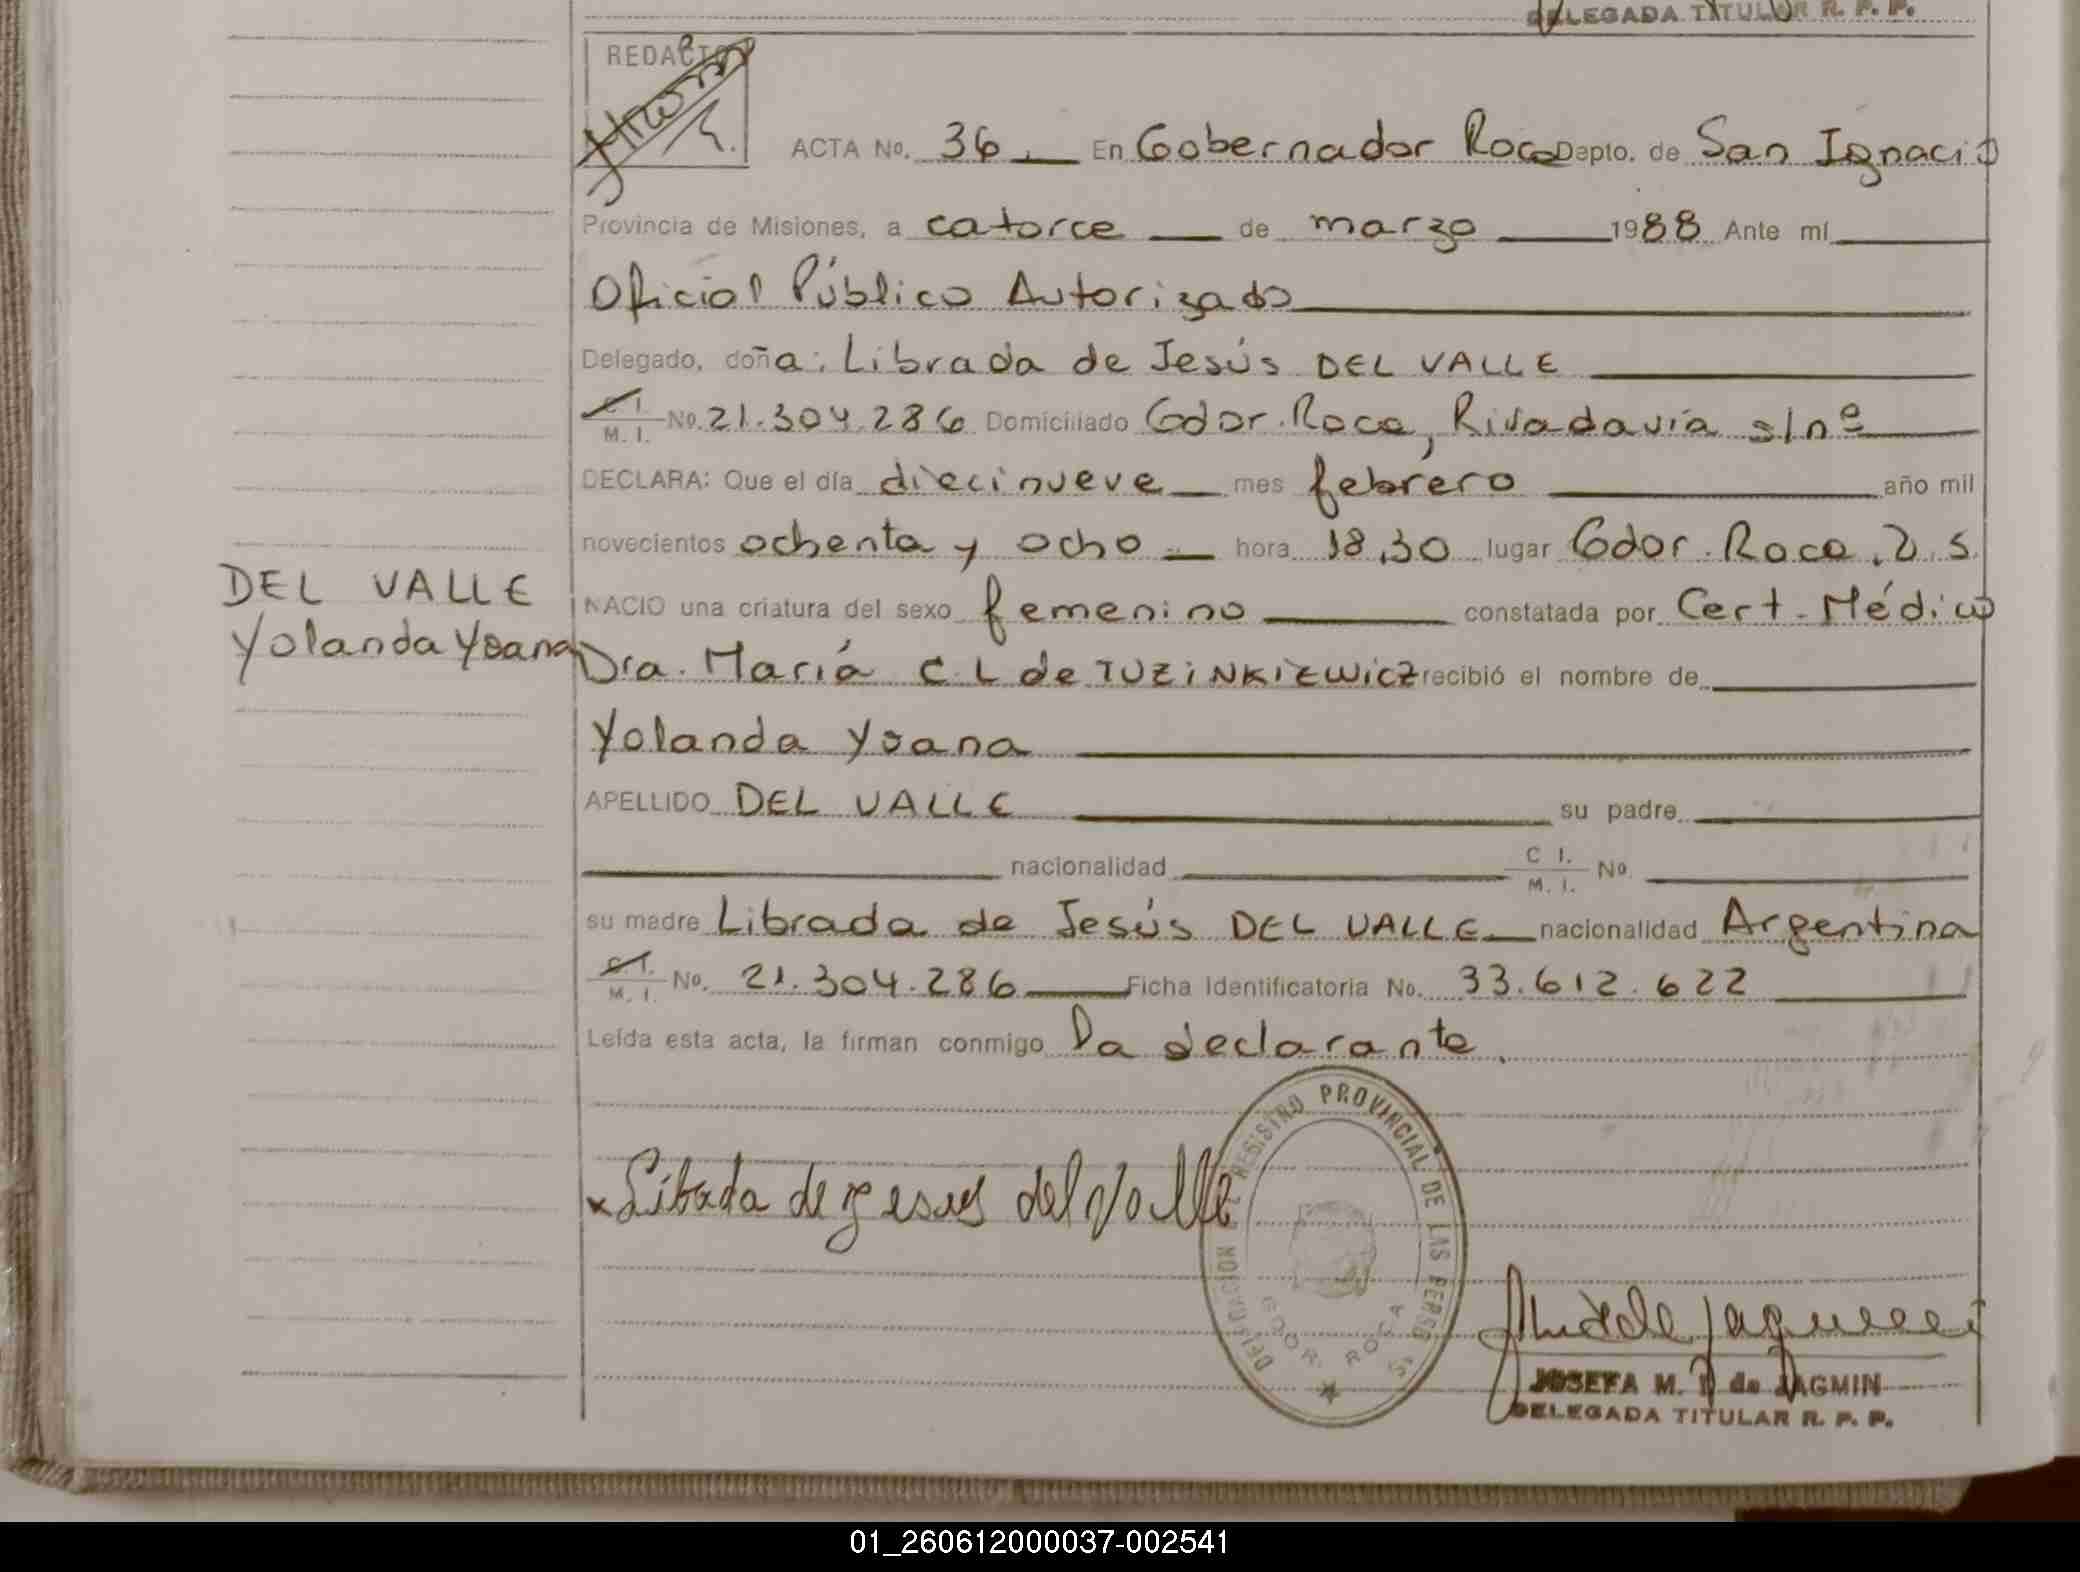 DELEGADA TITULAR R. P. P.
REDACTOR
ACTA No. 36 En Gobernador Roca Depto. de San Ignacio
Provincia de Misiones, a catorce de marzo 1988 Ante mí
Oficial Público Autorizado
Delegado, doña: Librada de Jesús DEL VALLE
C. I. M. I. No. 21.304.286 Domiciliado Gdor. Roca, Rivadavia s/nº
DECLARA: Que el día diecinueve mes febrero año mil
novecientos ochenta y ocho hora 18,30 lugar Gdor. Roca, D. S.
DEL VALLE
Yolanda Ysana
NACIO una criatura del sexo femenino constatada por Cert. Médico
Dra. María C. L de TUZiNKiEWiCZ recibió el nombre de
Yolanda Ysana
APELLIDO DEL VALLE su padre
nacionalidad C I. M. I. No
su madre Librada de Jesús DEL VALLE nacionalidad Argentina
C. I. M. I. No. 21.304.286 Ficha Identificatoria No. 33.612.622
Leída esta acta, la firman conmigo la declarante.
Librada de Jesus del Valle
DELEGACION REGISTRO PROVINCIAL DE LAS PERSONAS
GDOR. ROCA
JOSEFA M. de JAGMIN
DELEGADA TITULAR R. P. P.
01_260612000037-002541